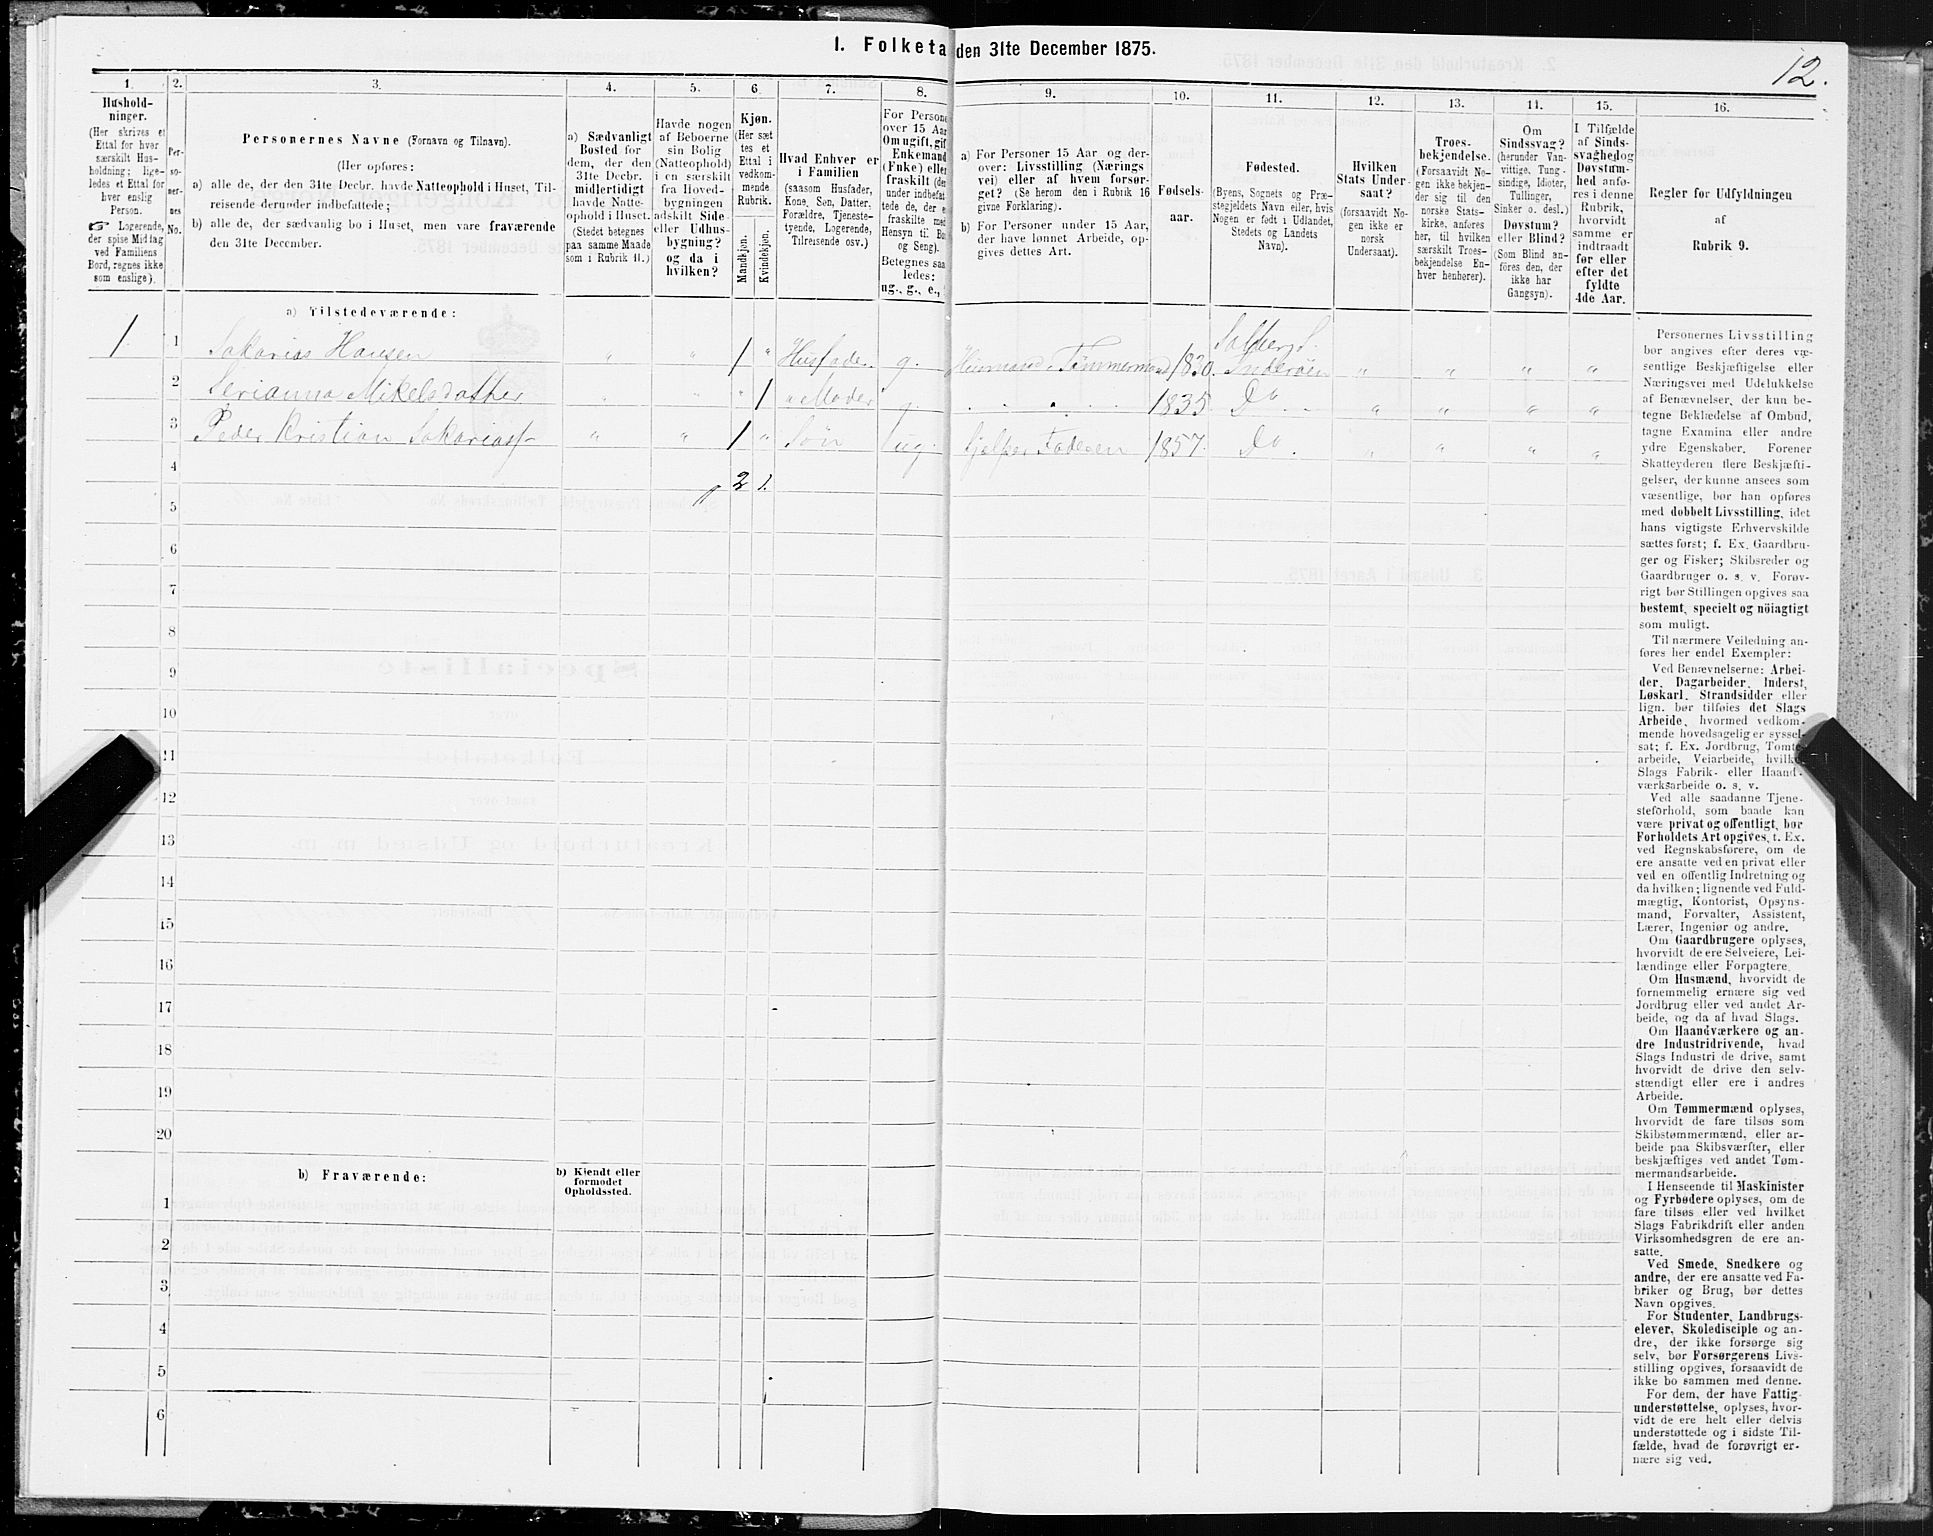 I. Folketa den 31te December 1875.
12.
1.
2.
3.
4.
5.
6.
7.
8.
9.
10.
11.
12.
13.
14.
15.
16.
Hushold-
ninger.
(Her skrives et
Ettal for hver
særskilt Hus-
holdning; lige-
ledes et Ettal for
hver enslig
Person.
☞ Logerende,
der spise Middag
ved Familiens
Bord, regnes ikke
som enslige).
Per-
so-
ner-
nes
No.
Personernes Navne (Fornavn og Tilnavn).
(Her opføres:
a) alle de, der den 31te Decbr. havde Natteophold i Huset, Til-
reisende derunder indbefattede;
b) alle de, der sædvanlig bo i Huset, men vare fraværende
den 31te December.
a) Sædvanligt
Bosted for
dem, der den
31te Decbr.
midlertidigt
havde Natte-
ophold i Huset.
(Stedet betegnes
paa samme Maade
som i Rubrik 11.)
Havde nogen
af Beboerne
sin Bolig
(Natteophold)
i en særskilt
fra Hoved-
bygningen
adskilt Side-
eller Udhus-
bygning?
og da i
hvilken?
Kjøn.
(Her sæt
tes et
Ettal i
vedkom-
mende
Rubrik.
Mandkjøn.
Kvindekjøn.
Hvad Enhver er
i Familien
(saasom Husfader,
Kone, Søn, Datter,
Forældre, Tjeneste-
tyende, Logerende,
Tilreisende osv.)
For Persone
over 15 Aar
Om ugift, gif
Enkemand
(Enke) eller
fraskilt (der
under indbefat
tede de, der e
fraskilte me
Hensyn til Bo
og Seng).
Betegnes saa
ledes:
ug., g., e.,
a) For Personer 15 Aar og der-
over: Livsstilling (Nærings
vei) eller af hvem forsør-
get? (Se herom den i Rubrik 16
givne Forklaring).
b) For Personer under 15 Aar,
der have lønnet Arbeide, op-
gives dettes Art.
Fødsels-
aar.
Fødested.
(Byens, Sognets og Præ-
stegjeldets Navn eller, hvis
Nogen er født i Udlandet,
Stedets og Landets
Navn).
Hvilken
Stats Under-
saat?
(forsaavidt No-
gen ikke er
norsk
Undersaat).
Troes-
bekjendelse.
(Forsaavidt No-
gen ikke bekjen-
der sig til den
norske Stats-
kirke, anføres
her, til hvilken
særskilt Troes-
bekjendelse En-
hver henhører).
Om
Sindssvag?
(herunder Van-
vittige, Tung-
sindige, Idioter,
Tullinger,
Sinker o. desl.)
Døvstum?
eller Blind?
(Som Blind an-
føres den, der
ikke har
Gangsyn).
I Tilfælde
af Sinds-
svaghed og
Døvstum-
hed anfø-
res i denne
Rubrik,
hvorvidt
samme er
indtraadt
før eller
efter det
fyldte
4de Aar.
Regler for Udfyldningen
af
Rubrik 9.
a) Tilstedeværende:
1 1 Sakarias Hansen " " 1 " Husfader g. Husmand, Tømmermand 1830. Salberg S. Inderøen " " " "
2 Serianna Mikelsdather " " " 1 " Moder g. 1835 Do " " " "
3 Peder Kristian Sakariass " " 1 " Søn ug hjelper Faderen 1857. Do. " " " "
4 2 1.
5
6
7
8
9
10
11
12
13
14
15
16
17
18
19
20
b) Fraværende:
b) Kjendt eller
formodet
Opholdssted.
1
2
3
4
5
6
Personernes Livsstilling
bør angives efter deres væ-
sentlige Beskjæftigelse eller
Næringsvei med Udelukkelse
af Benævnelser, der kun be-
tegne Beklædelse af Ombud,
tagne Examina eller andre
ydre Egenskaber. Forener
Skatteyderen flere Beskjæfti-
gelser, der kunne ansees som
væsentlige, bør han opføres
med dobbelt Livsstilling, idet
hans vigtigste Erhvervskilde
sættes først; f. Ex. Gaardbru-
ger og Fisker; Skibsreder og
Gaardbruger o. s. v. Forøv-
rigt bør Stillingen opgives saa
bestemt, specielt og nöiagtigt
som muligt.
Til nærmere Veiledning an-
føres her endel Exempler:
Ved Benævnelserne: Arbei-
der, Dagarbeider, Inderst,
Løskarl, Strandsidder eller
lign. bør tilføies det Slags
Arbeide, hvormed vedkom-
mende hovedsagelig er syssel-
sat; f. Ex. Jordbrug, Tomte-
arbeide, Veiarbeide, hvilket
Slags Fabrik- eller Haand-
værksarbeide o. s. v.
Ved alle saadanne Tjene-
steforhold, som baade kan
være privat og offentligt, bør
Forholdets Art opgives, t. Ex.
ved Regnskabsførere, om de
ere ansatte ved en privat eller
ved en offentlig Indretning og
da hvilken; lignende ved Fuld-
mægtig, Kontorist, Opsyns-
mand, Forvalter, Assistent,
Lærer, Ingeniør og andre.
Om Gaardbrugere oplyses,
hvorvidt de ere Selveiere, Lei-
lændinge eller Forpagtere.
Om Husmænd, hvorvidt de
fornemmelig ernære sig ved
Jordbrug eller ved andet Ar-
beide, og da af hvad Slags.
Om Haandværkere og an-
dre Industridrivende, hvad
Slags Industri de drive, samt
hvorvidt de drive den selv-
stændigt eller ere i andres
Arbeide.
Om Tømmermænd oplyses,
hvorvidt de fare tilsøs som
Skibstømmermænd, eller ar-
beide paa Skibsværfter, eller
beskjæftiges ved andet Tøm-
mermandsarbeide.
I Henseende til Maskinister
og Fyrbødere oplyses, om de
fare tilsøs eller ved hvilket
Slags Fabrikdrift eller anden
Virksomhedsgren de ere an-
satte.
Ved Smede, Snedkere og
andre, der ere ansatte ved Fa-
briker og Brug, bør dettes
Navn opgives.
For Studenter, Landbrugs-
elever, Skoledisciple og an-
dre, der ikke forsørge sig
selv, bør Forsørgerens Livs-
stilling opgives, forsaavidt de
ikke bo sammen med denne.
For dem, der have Fattig-
understøttelse, oplyses, hvor-
vidt de ere helt eller delvis
understøttede og i sidste Til-
fælde, hvad de forøvrigt er-
nære sig ved.